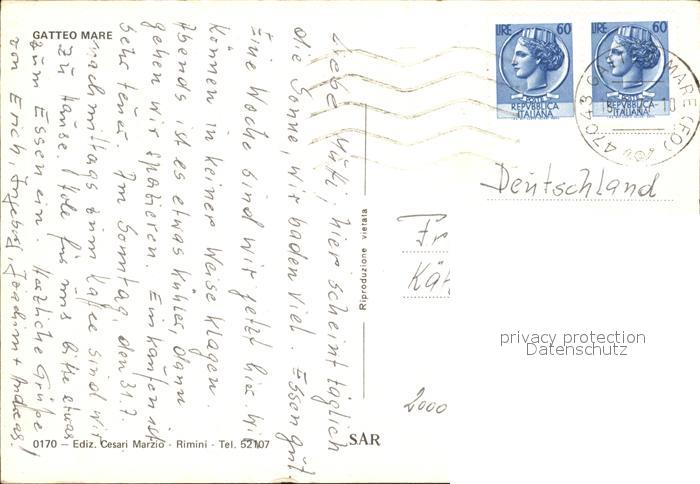 GATTEO MARE
Liebe Mutti, hier scheint täglich
die Sonne, wir baden viel. Essen gut.
Eine Woche sind wir jetzt hier. Wir
können in keiner Weise klagen.
Abends ist es etwas kühler, dann
gehen wir spazieren. Einkaufen ist
sehr teuer. Am Sonntag, den 31.7.
nachmittags zum Kaffee sind wir
zu Hause. Hole für uns bitte etwas
zum Essen ein. Herzliche Grüße
von Erich, Ingeborg, Joachim + Andreas!
0170 – Ediz. Cesari Marzio - Rimini - Tel. 52107
SAR
Riproduzione vietata
LIRE 60
POSTE
REPVBBLICA
ITALIANA
LIRE 60
REPVBBLICA
ITALIANA
47043 MARE (FO)
Deutschland
Fr
Kät
privacy protection
Datenschutz
2000